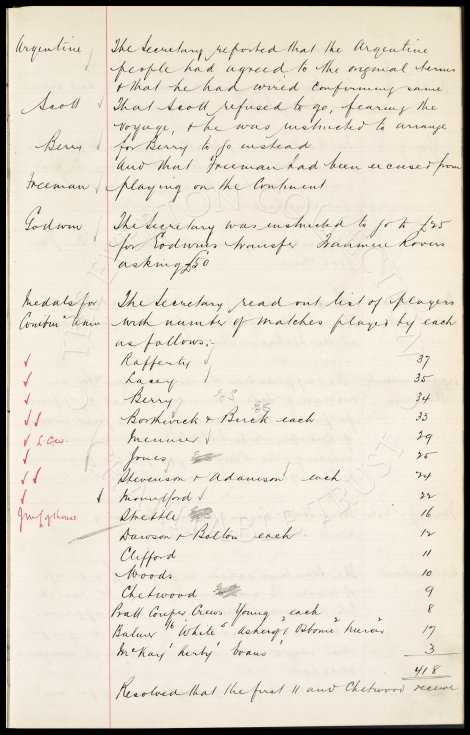 Argentine The Secretary reported that the Argentine
people had agreed to the original terms
& that he had wired confirming same
Scott That Scott refused to go, fearing the
voyage, & he was instructed to arrange
Berry for Berry to go instead
And that Freeman had been excused from
Freeman playing on the Continent
Godwin The Secretary was instructed to go to £25
for Godwins transfer Tranmere Rovers
asking £50
Medals for The Secretary read out list of players
Combin with number of matches played by each
as follows:-
Rafferty 37
Lacey 35
Berry 34
Borthwick & Buck each 33
Meunier 29
Jones 25
Stevenson & Adamson each 24
Mountford 22
Strettle 16
Dawson & Bolton each 12
Clifford 11
Woods 10
Chetwood 9
Pratt Couper Crews Young each 8
Balmer White Osborne 17
McKay Kirby Evans 3
418
Resolved that the first 11 and Chetwood receive